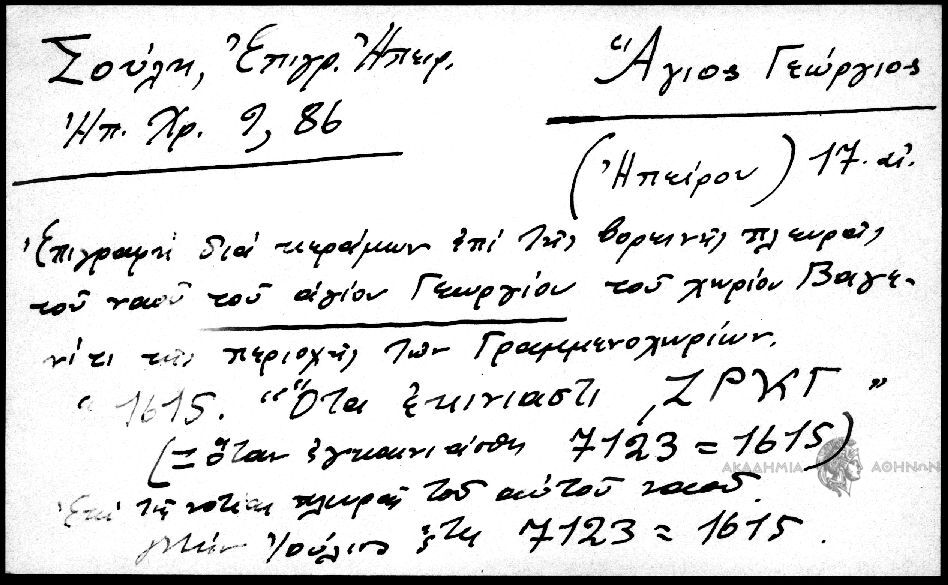 Σούλη, Ἐπιγρ. Ἠπειρ.
Ἠπ. Χρ. 9, 86
Ἅγιος Γεώργιος
(Ἠπείρου) 17. αἰ.
Ἐπιγραφή διά κεράμων ἐπί τῆς βορεινῆς πλευρᾶς
τοῦ ναοῦ τοῦ ἁγίου Γεωργίου τοῦ χωρίου Βαγε-
νίτι τῆς περιοχῆς τῶν Γραμμενοχωρίων.
" 1615. "Ὅτα ἐκινιαστι ,ΖΡΚΓ "
(= ὅταν ἐγκαινιάσθη 7123 = 1615)
Ἐπί τῆς νοτίας πλευρᾶς τοῦ αὐτοῦ ναοῦ.
μην Ἰούλιος ἔτη 7123 = 1615.
ΑΚΑΔΗΜΙΑ ΑΘΗΝΩΝ